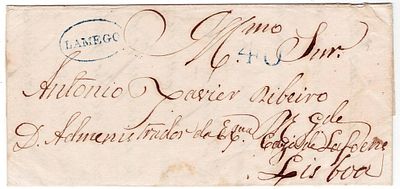 LAMEGO
Illmo Snr.
40
Antonio Xavier Ribeiro
D. Administrador da Exma Caza de
Lisboa